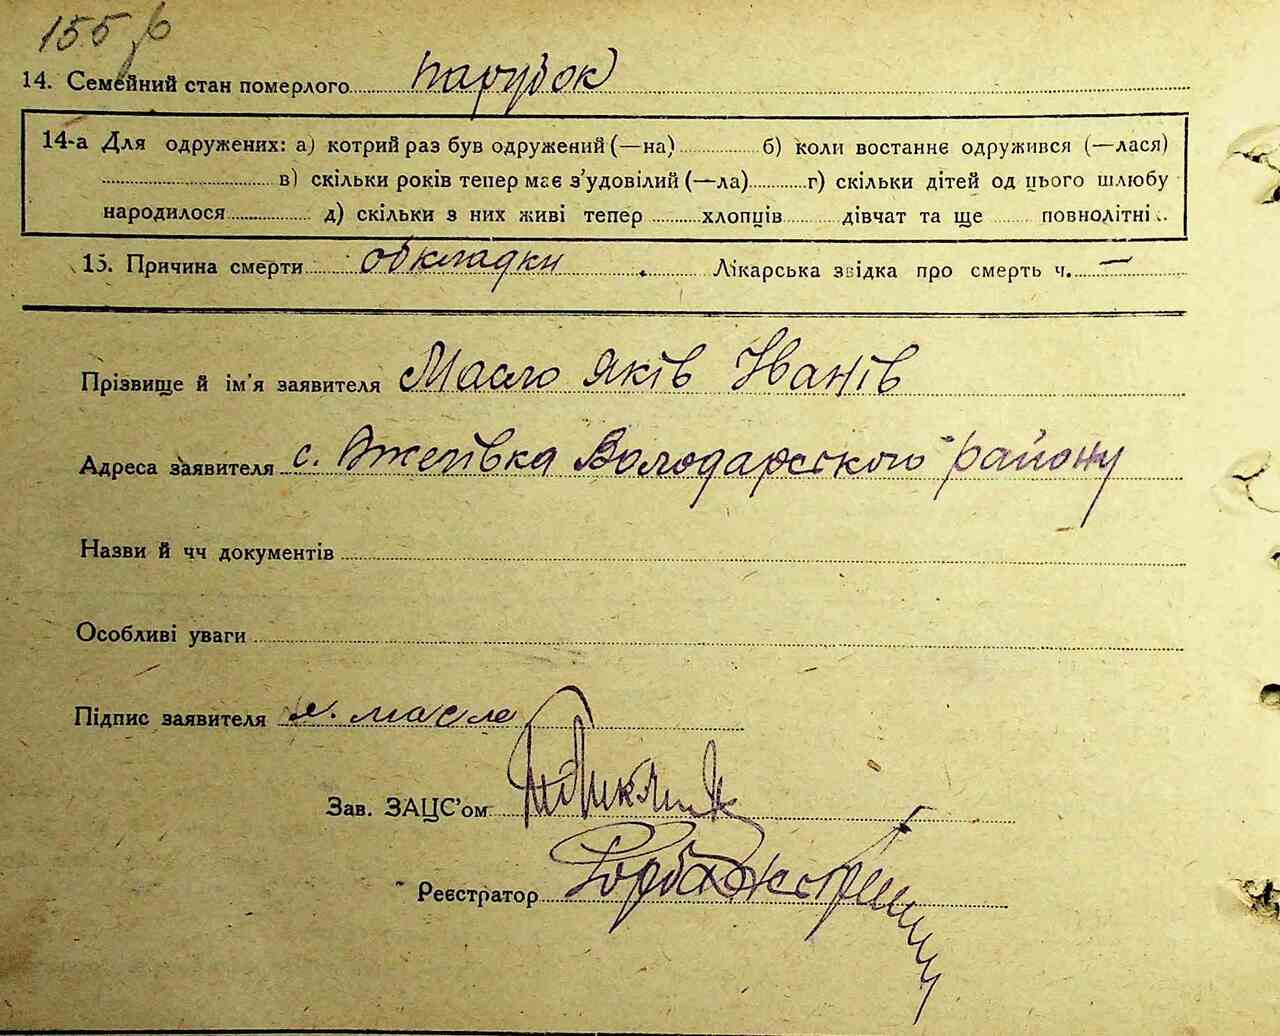 155
14. Семейний стан померлого парубок
14-а Для одружених: а) котрий раз був одружений (—на) б) коли востаннє одружився (—лася)
в) скільки років тепер має з'удовілий (—ла) г) скільки дітей од цього шлюбу
народилося д) скільки з них живі тепер хлопців дівчат та ще повнолітні
15. Причина смерти обкладки Лікарська звідка про смерть ч. —
Прізвище й ім'я заявителя Масло Яків Іванів
Адреса заявителя с. Володарского району
Назви й чч документів
Особливі уваги
Підпис заявителя Я. масло
Зав. ЗАЦС'ом
Реєстратор